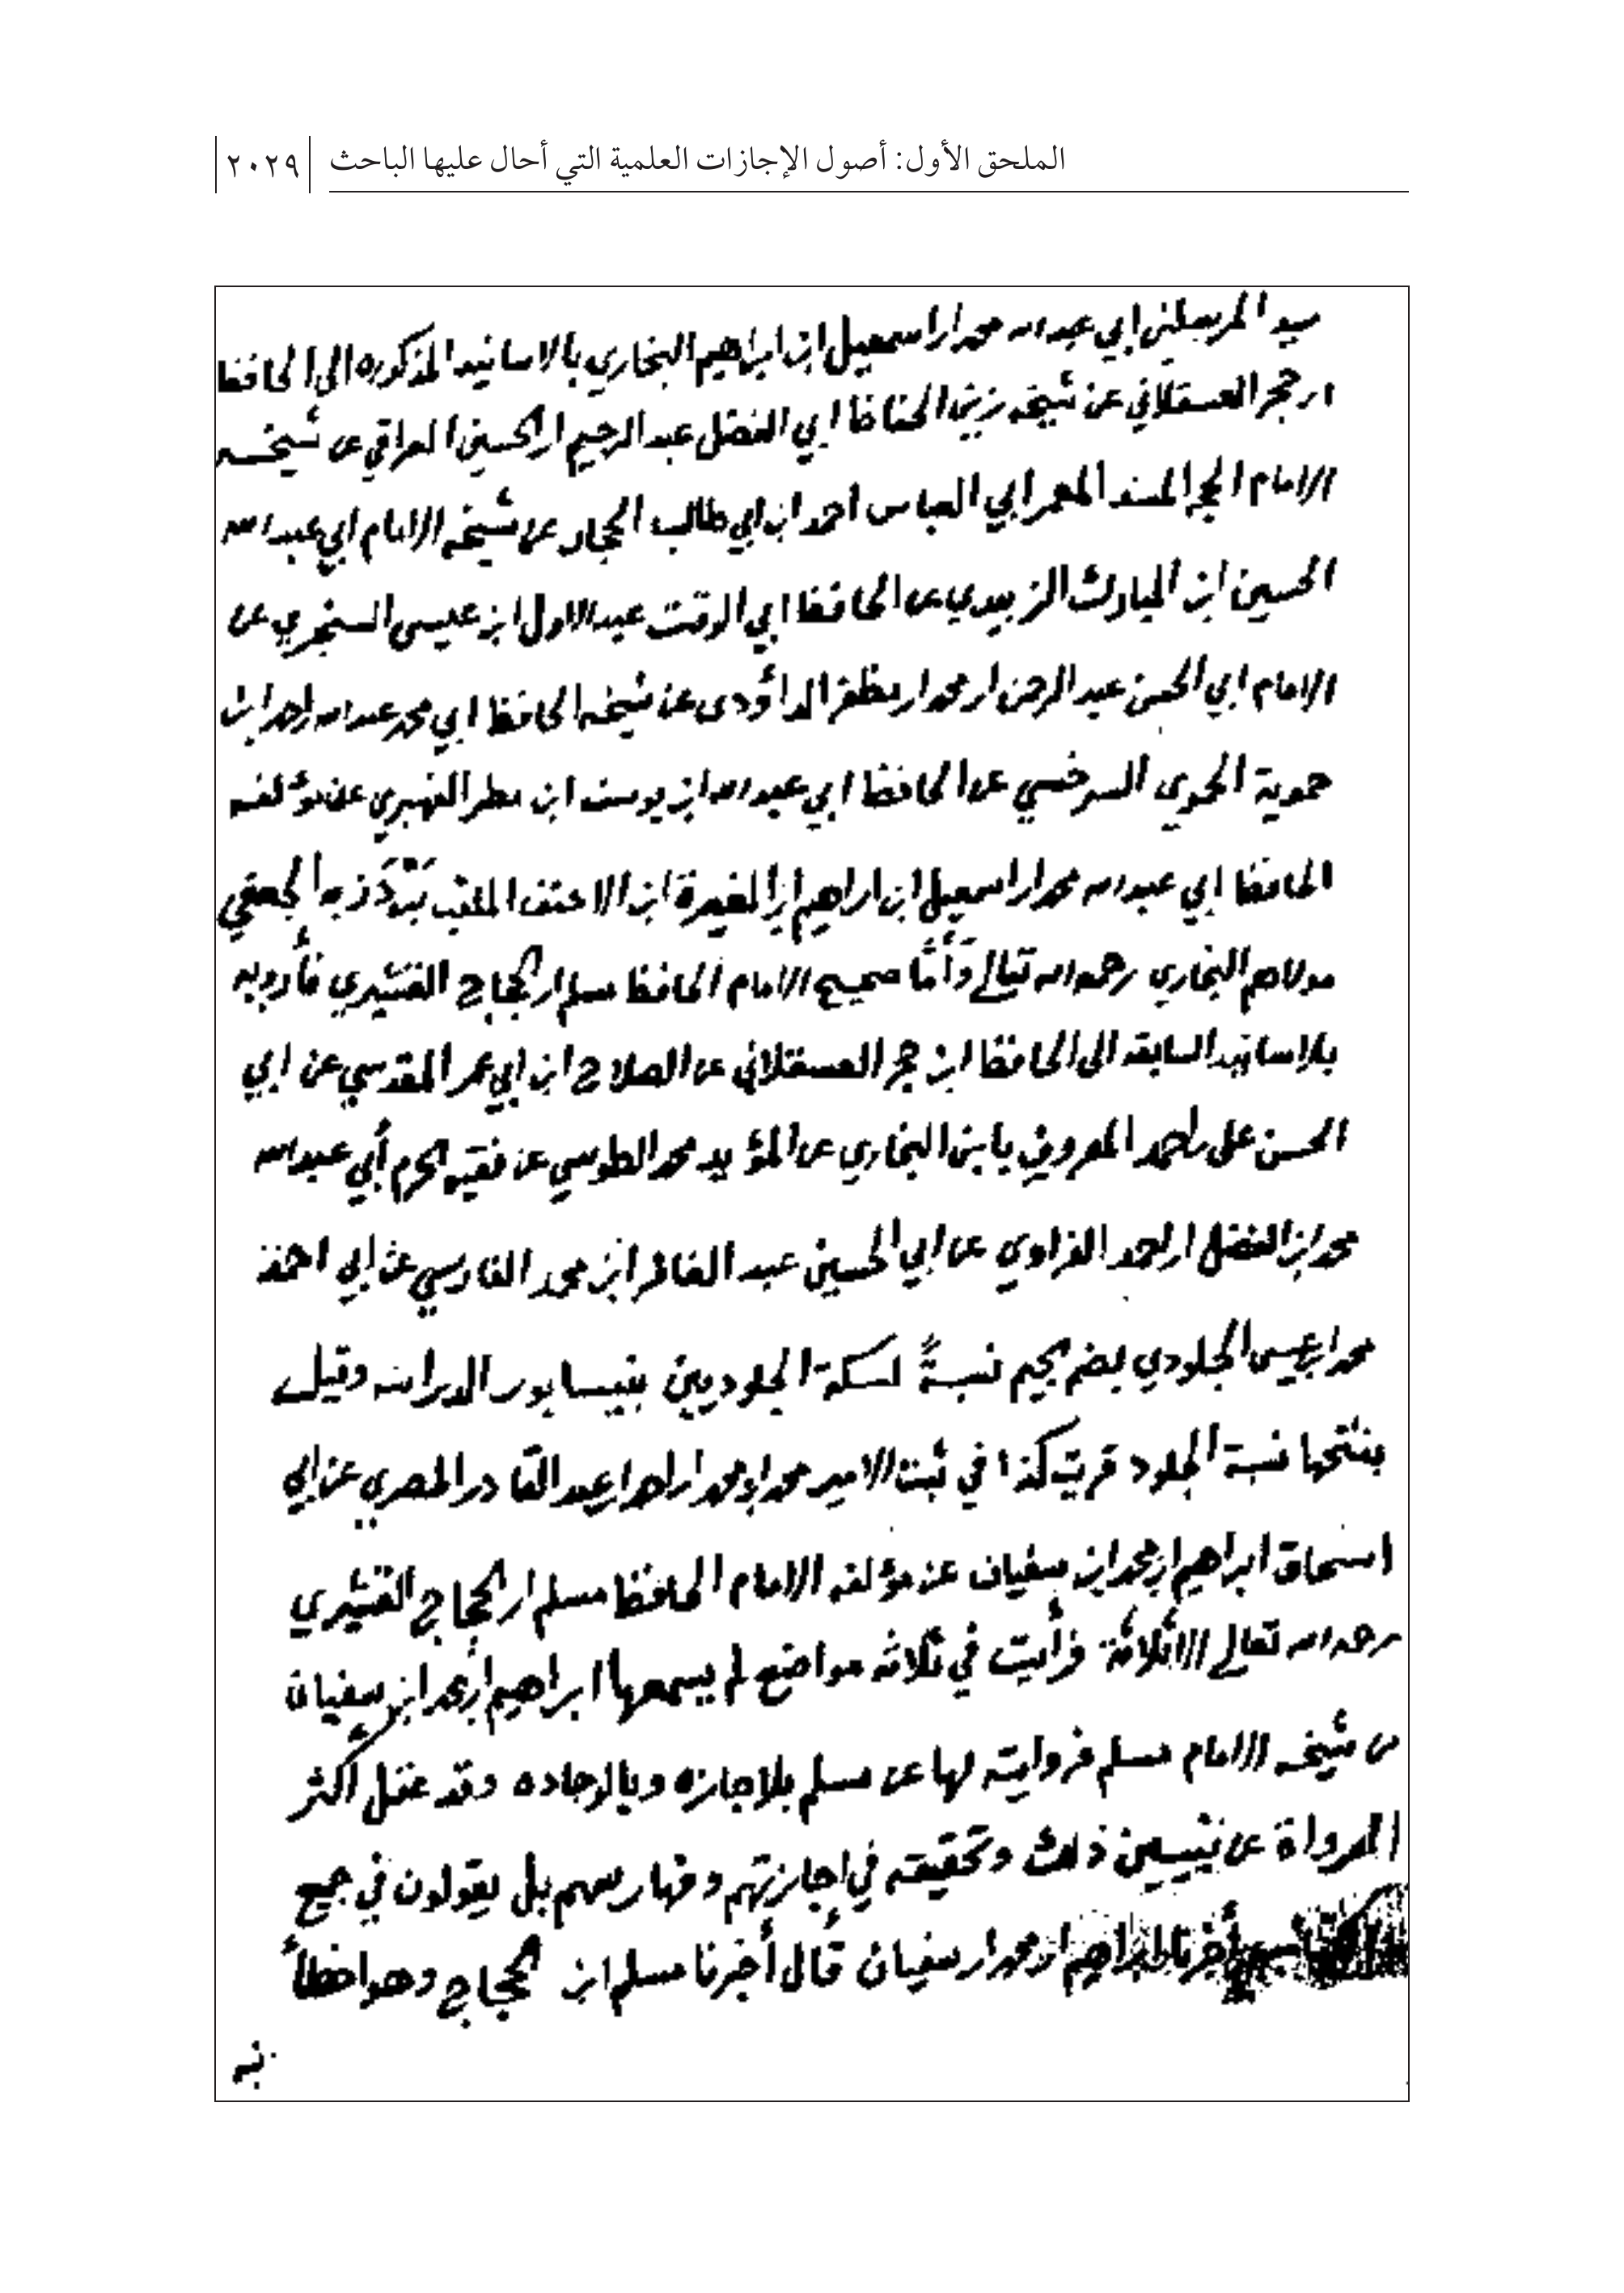 الملحق الأول: أصول الإجازات العلمية التي أحال عليها الباحث ٢٠٢٩
سيد المرسلين ابي عبد الله محمد ابن اسمعيل ابن ابراهيم البخاري بالاسانيد المذكوره الى الحافظ
ابن حجر العسقلاني عن شيخه زين الحفاظ ابي الفضل عبد الرحيم ابن الحسين العراقي عن شيخه
الامام المسند المعمر ابي العباس احمد ابن ابي طالب الحجار عن شيخه الامام ابي عبد الله
الحسين ابن المبارك الزبيدي عن الحافظ ابي الوقت عبد الاول ابن عيسى السنجري عن
الامام ابي الحسن عبد الرحمن ابن محمد ابن مظفر الداؤدى عن شيخه الحافظ ابي محمد عبد الله ابن احمد ابن
حموية الحموى السرخسي عن الحافظ ابي عبد الله ابن يوسف ابن مطر الفهبري عن مؤلفه
الحافظ ابي عبد الله محمد ابن اسمعيل ابن ابراهيم ابن المغيرة ابن الاحنف الملقب بَرْدَزبه الجعفي
مولاهم البخاري رحمه الله تعالى وَأَمَّا صحيح الامام الحافظ مسلم ابن الحجاج القشيري فأرويه
بلاسانيد السابقه الى الحافظ ابن حجر العسقلاني عن الصلاح ابن ابي عمر المقدسي عن ابي
الحسن على بن احمد المعروف بابن البخاري عن المؤيد محمد الطوسي عن فقيه الحرم أبي عبد الله
محمد ابن الفضل ابن احمد الفراوي عن ابي الحسين عبد الغافر ابن محمد الفارسي عن ابي احمد
محمد ابن عيسى الجلودي بضم الجيم نسبةً لسكة الجلوديين بنيسابور الدراسه وقيل
بفتحها نسبة الجلود قرية كذا في ثبت الامير محمد ابن محمد ابن احمد ابن عبد القادر المصري عن ابي
اسحاق ابراهيم ابن محمد ابن سفيان عن مؤلفه الامام الحافظ مسلم ابن الحجاج القشيري
رحمه الله تعالى الا ثلاثة فرأيت في ثلاثه مواضع لم يسمعها ابراهيم ابن محمد ابن سفيان
من شيخه الامام مسلم فروايته لها عن مسلم بلاجازه وبالوجاده وقد غفل أكثر
الرواة عن تبيين ذلك وتحقيقه في اجازتهم وفهارسهم بل يقولون في جميع
أخبرنا ابراهيم ابن محمد ابن سفيان قال أخبرنا مسلم ابن الحجاج وهو اخطأ